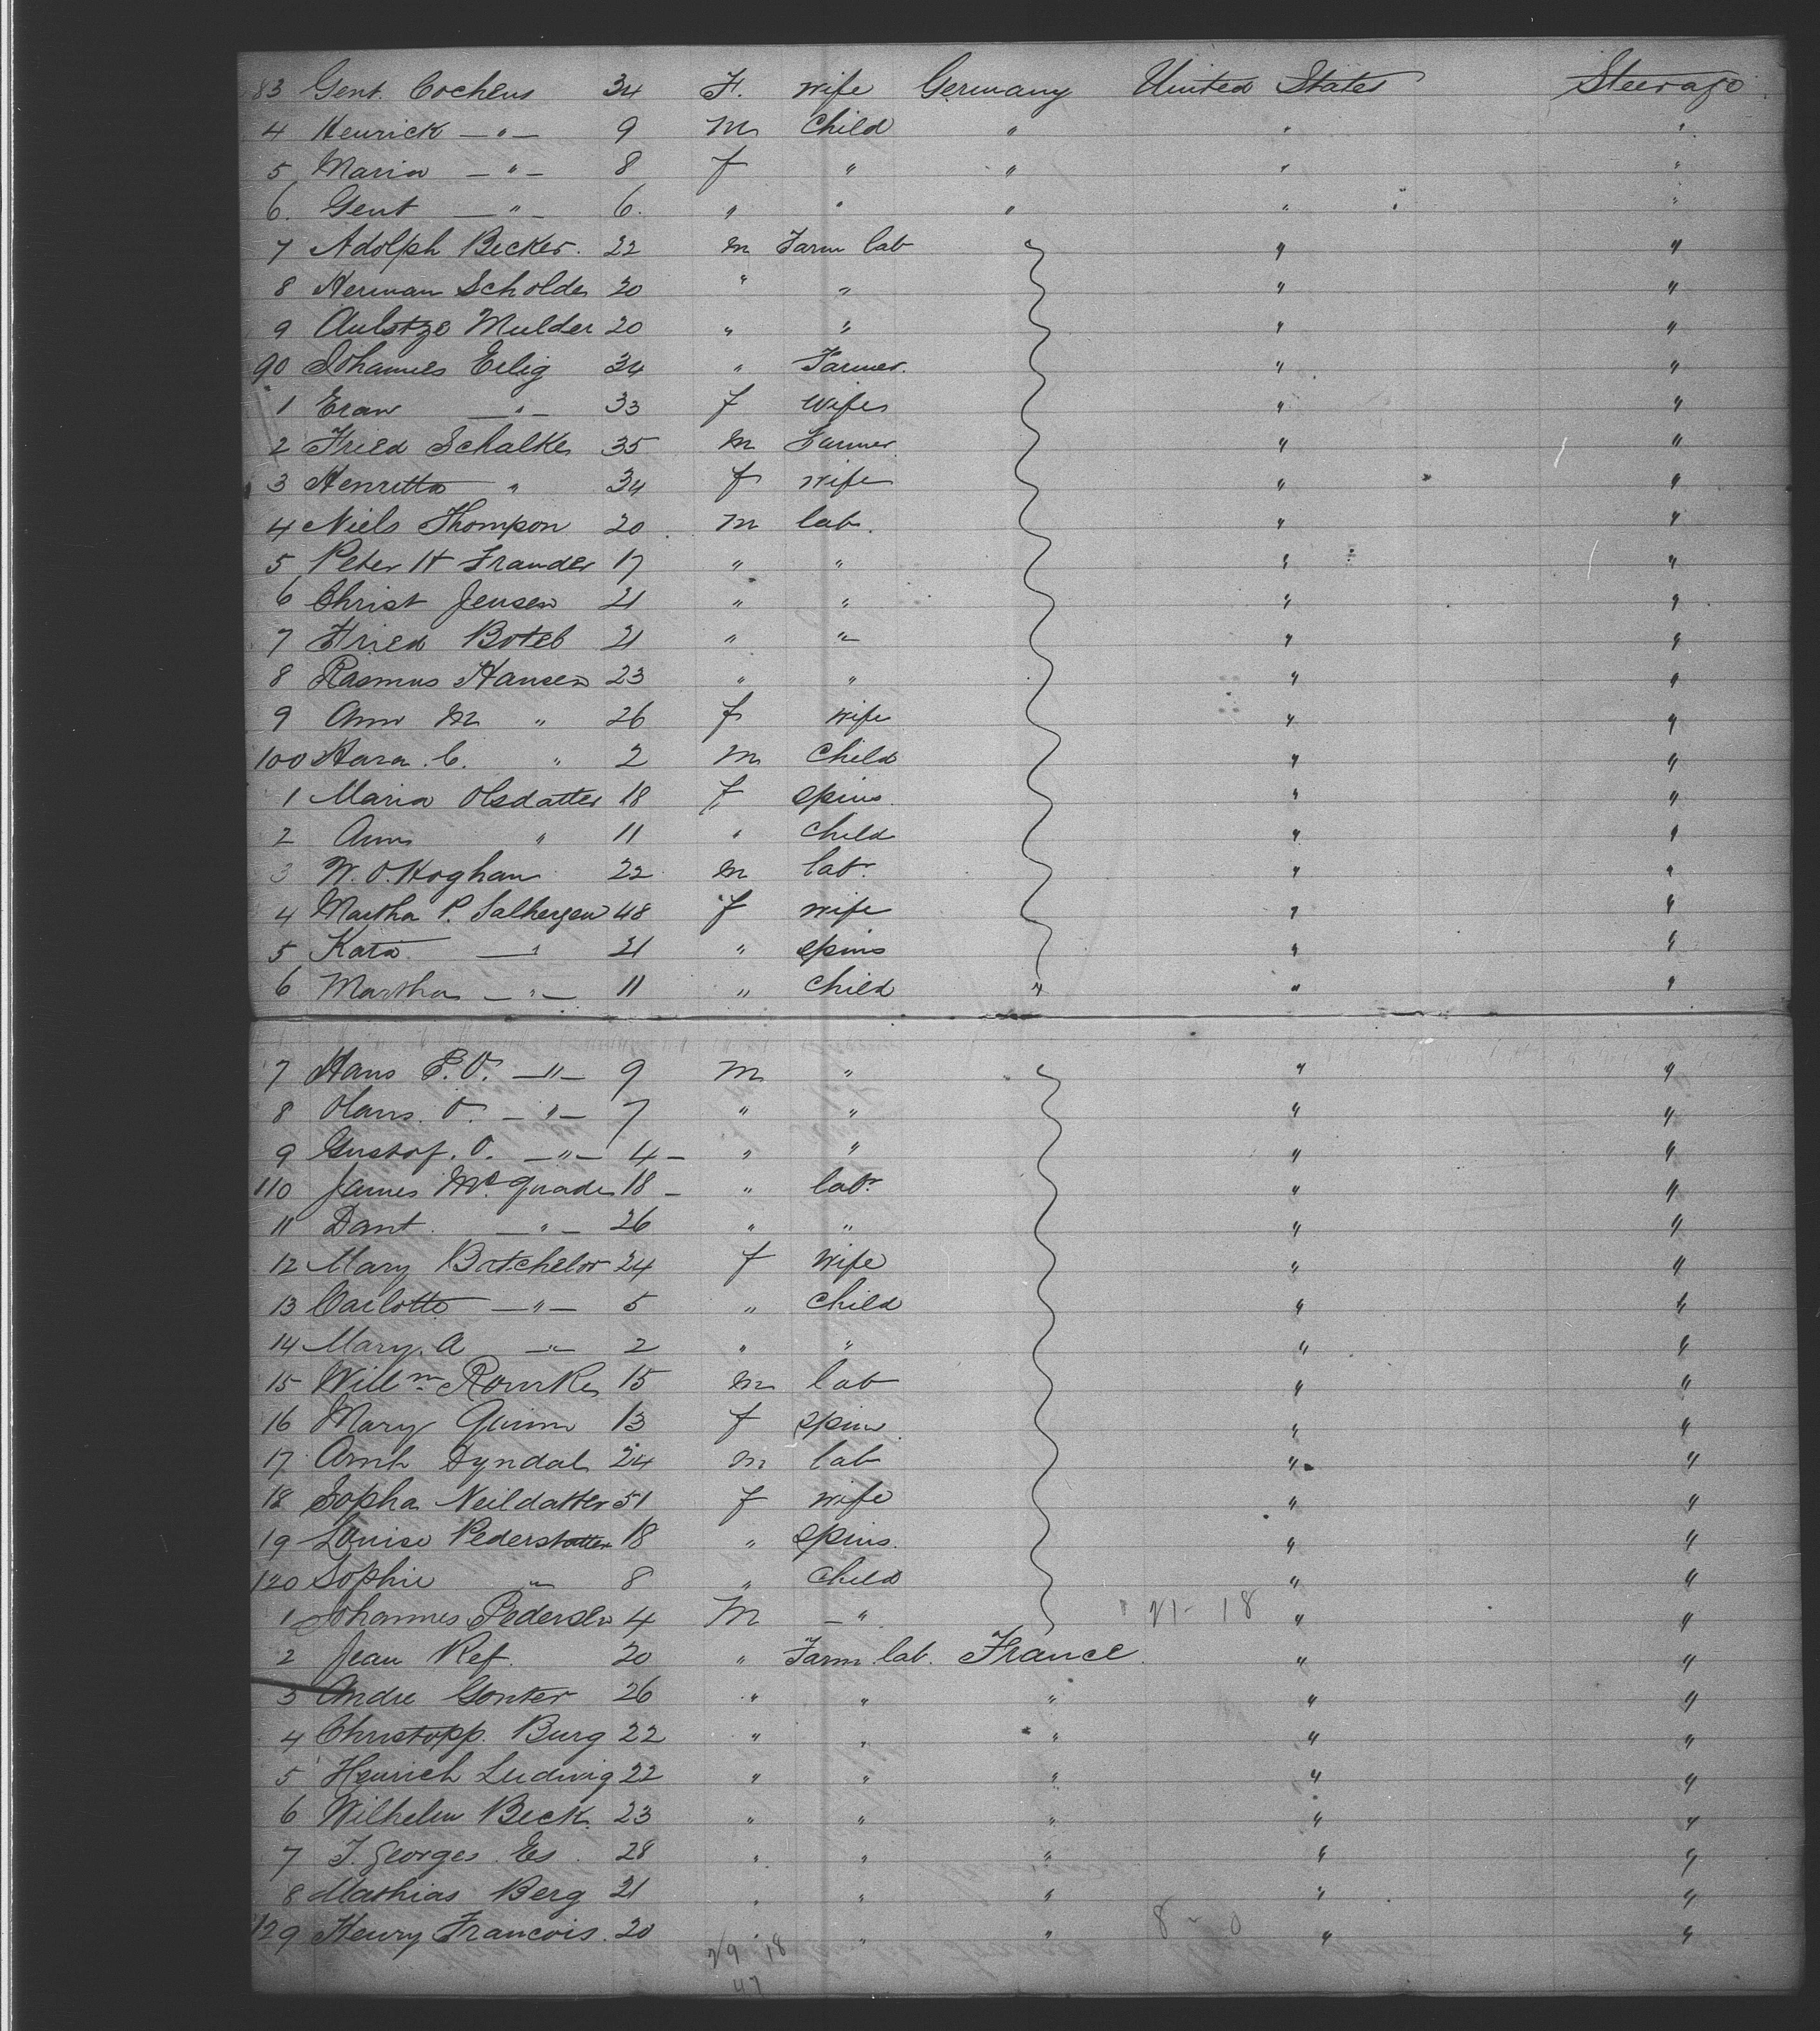 83 Gent. Cochens 34 F. wife Germany United States Steerage
4 Henrick — " — 9 M Child " " "
5 Maria — " — 8 f " " " "
6. Gent — " — 6. " " " " "
7 Adolph Becker. 22 m Farm lab " "
8 Herman Scholde 20 " " " "
9 Mulder 20 " " " "
90 Johannes Erlig 34 " Farmer. " "
1 Eran — " — 33 f Wife " "
2 Fried Schalke 35 m Farmer " "
3 Henretta " 34 f wife " "
4 Niels Thompon 20 m lab. " "
5 Peter H Frander 17 " " " "
6 Christ Jensen 21 " " " "
7 Fried Boteb 21 " " " "
8 Rasmus Hansen 23 " " " "
9 Ann M " 26 f wife " "
100 Hara. C. " 2 m Child " "
1 Maria Olsdatter 18 f spins. " "
2 Ann " 11 " Child " "
3 W. O. Hoghan 22 m labr. " "
4 Martha P. Salhergen 48 f wife " "
5 Kata — " 21 " spins " "
6 Martha — " — 11 " Child " " "
7 Hans P. O. — " — 9 m " " "
8 Olans. O. — " — 7 " " " "
9 Gustof. O. — " — 4 — " " " "
110 James Mc Quade 18 — " labr. " "
11 Dant. — " — 26 " " " "
12 Mary Batchelor 24 f wife " "
13 Carlotte — " — 5 " Child " "
14 Mary. A — " — 2 " " " "
15 Willm Rourke 15 m lab " "
16 Mary Quinn 13 f spins. " "
17 Hyndal 24 m lab " "
18 Sopha Neildatter 51 f wife " "
19 Louise Pederstatter 18 " spins. " "
120 Sophie " 8 " Child " "
1 Johannes Pedersen 4 M — " 21 - 18 " "
2 Jean Ref. 20 " Farm lab. France " "
3 Andre Gonter 26 " " " " "
4 Christopp. Burg 22 " " " " "
5 Heinrich Ludwig 22 " " " " "
6 Wilhelm Beck. 23 " " " " "
7 J. Georges Es. 28 " " " " "
8 Mathias Berg 21 " " " " "
129 Henry Francois. 20 " " " 8 - 0 " "
29 18
47